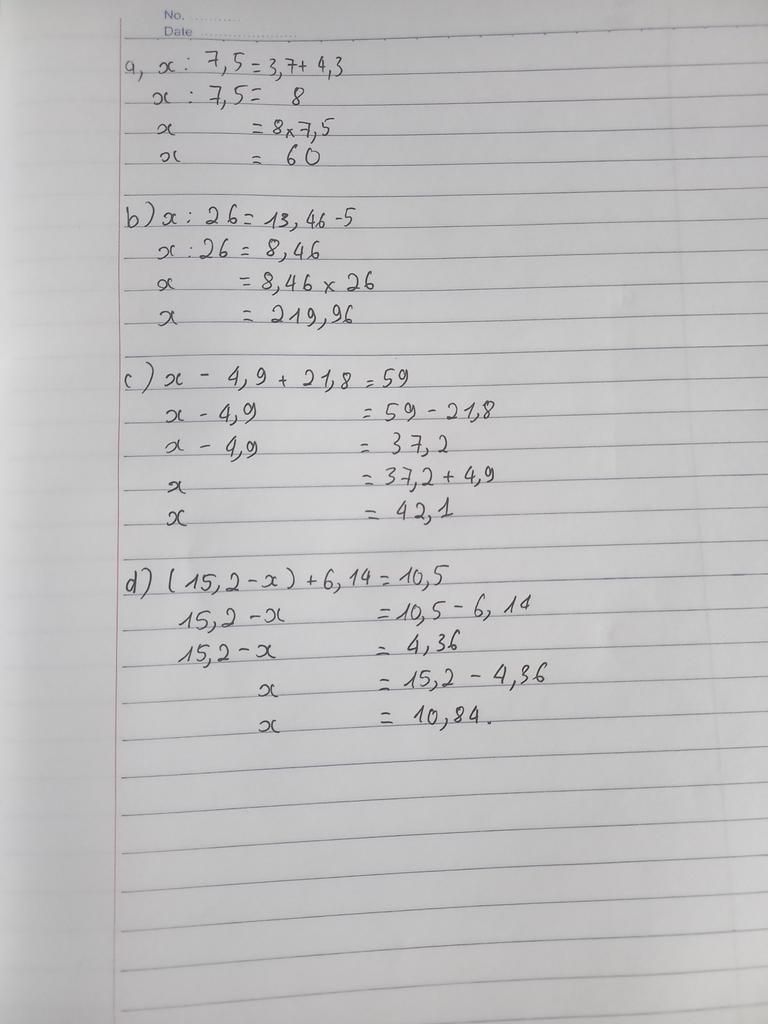 No. ..........
Date ....................
a, x : 7,5 = 3,7 + 4,3
x : 7,5 = 8
x = 8 x 7,5
x = 60
b) x : 26 = 13,46 - 5
x : 26 = 8,46
x = 8,46 x 26
x = 219,96
c) x - 4,9 + 21,8 = 59
x - 4,9 = 59 - 21,8
x - 4,9 = 37,2
x = 37,2 + 4,9
x = 42,1
d) (15,2 - x) + 6,14 = 10,5
15,2 - x = 10,5 - 6,14
15,2 - x = 4,36
x = 15,2 - 4,36
x = 10,84.